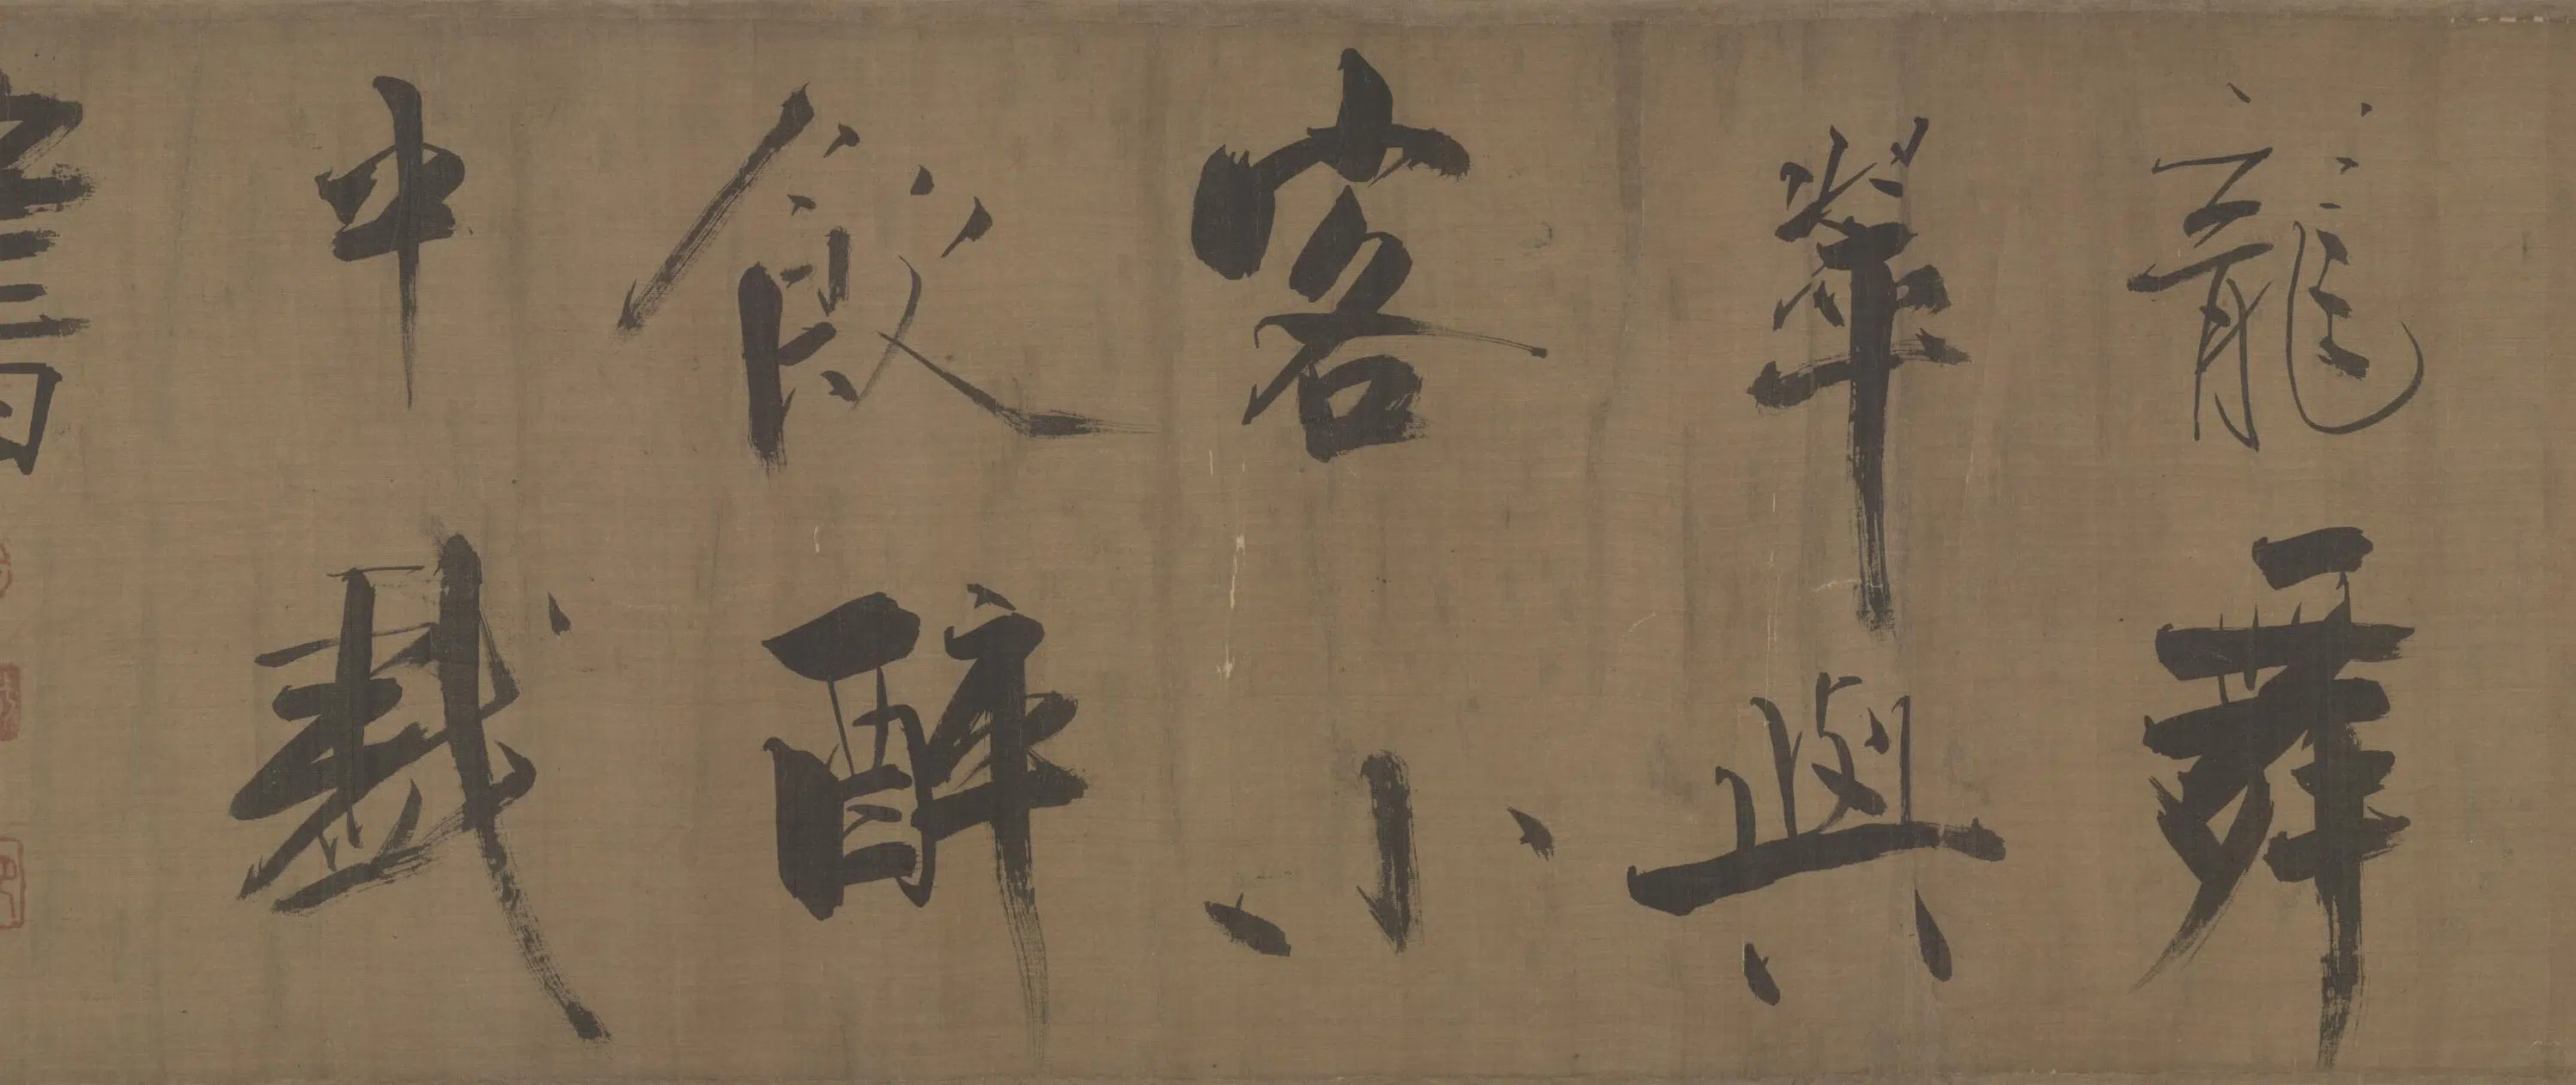 龍舞
華與
客小
飲醉
中戲
書